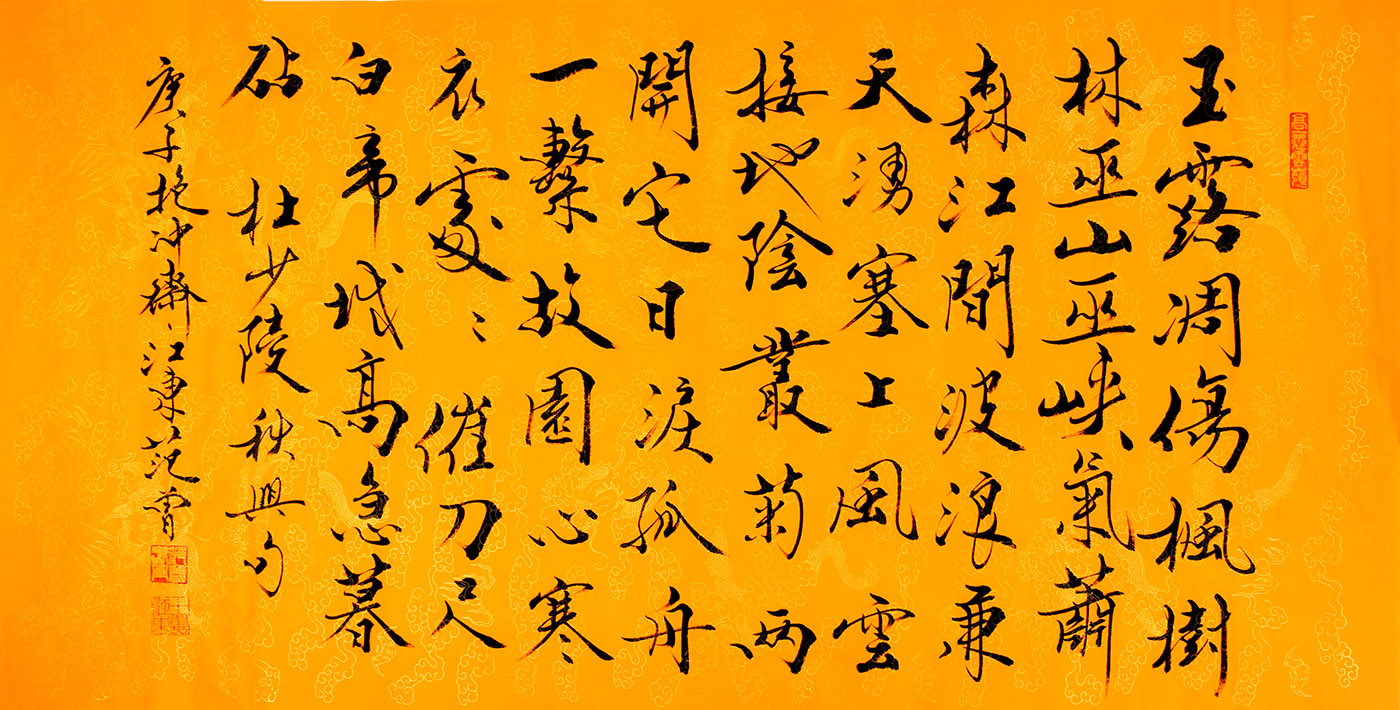 玉露凋傷楓樹
林巫山巫峽氣蕭
森江間波浪兼
天湧塞上風雲
接地陰叢菊兩
開它日淚孤舟
一繫故園心寒
衣處〻催刀尺
白帝城高急暮
砧 杜少陵秋興句
庚子抱冲齋江東范曾